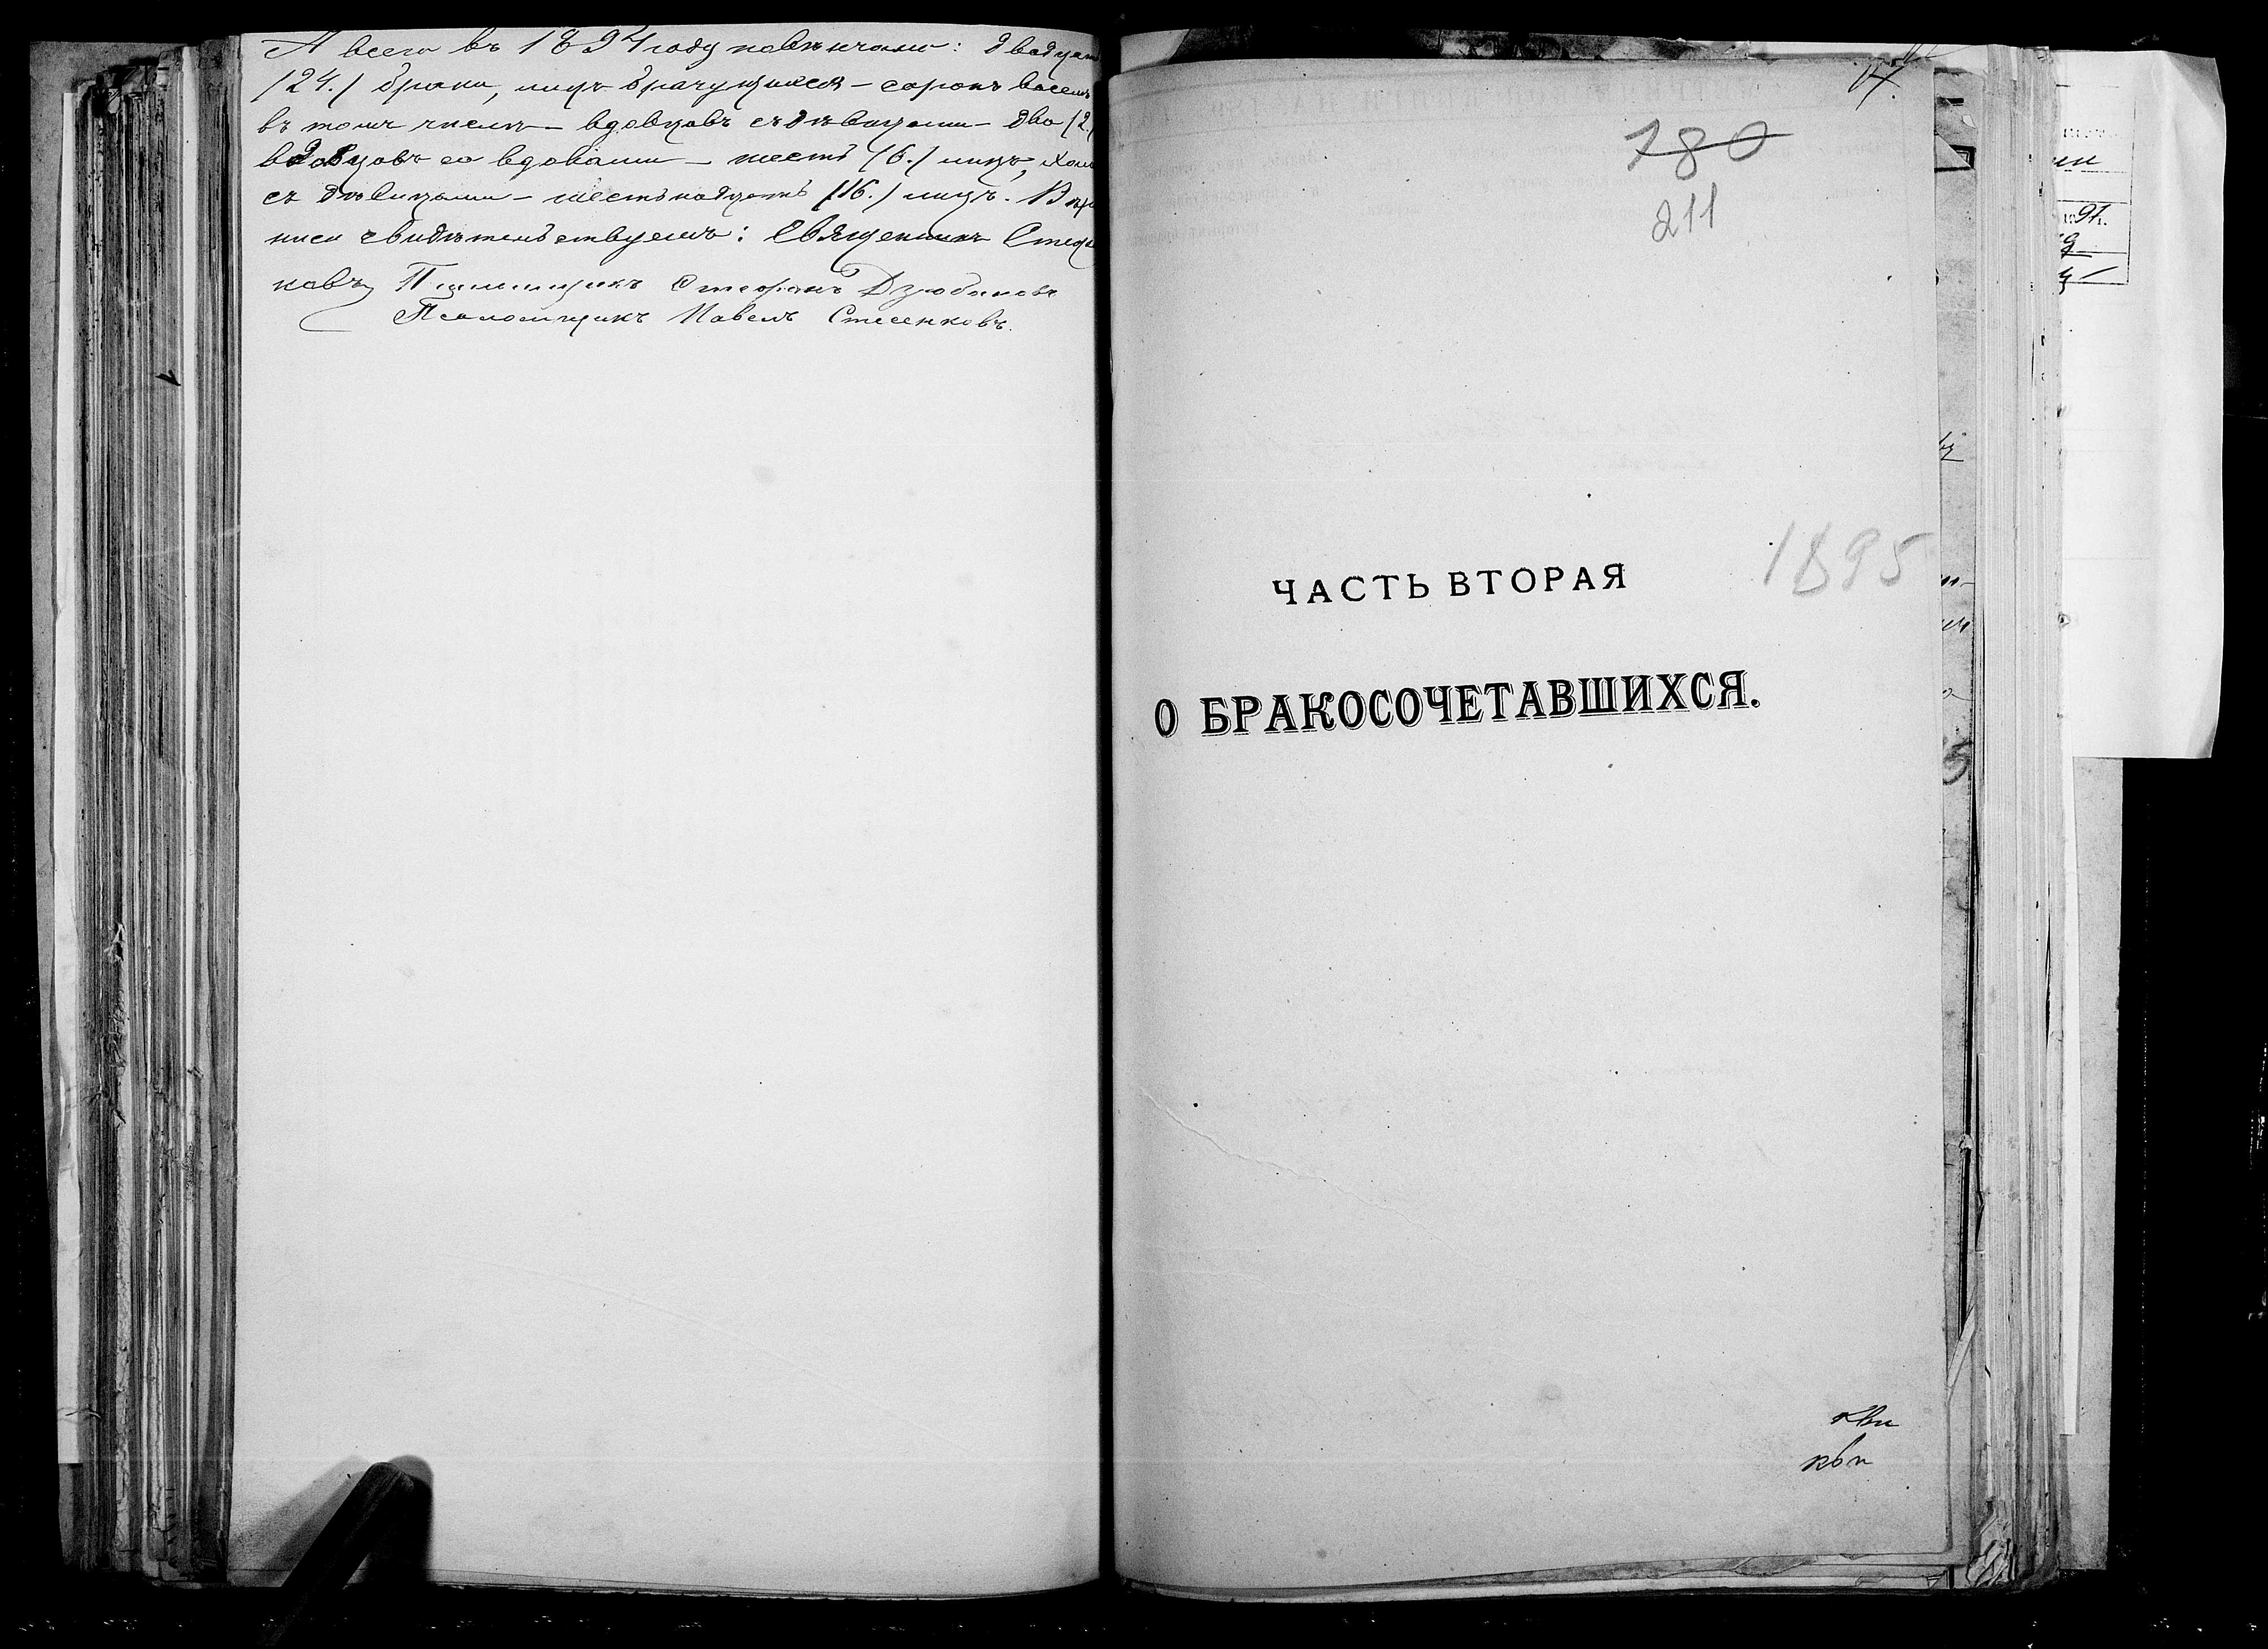 А всего въ 1894 году повѣнчано: двадцат
/24./ брака, лицъ брачущихся – сорокъ восемь
въ томъ числѣ – вдовцовъ съ дѣвицами – два /2./
вдовцовъ со вдовами – шесть /6./ лицъ,
съ дѣвицами – шестьнадцать /16./ лицъ.
писи свидѣтельствуемъ: Священникъ
ковъ Псаломщикъ Стефанъ Дзюбановъ
Псаломщикъ Павелъ Стесенковъ.
180
211
1895
ЧАСТЬ ВТОРАЯ
О БРАКОСОЧЕТАВШИХСЯ.